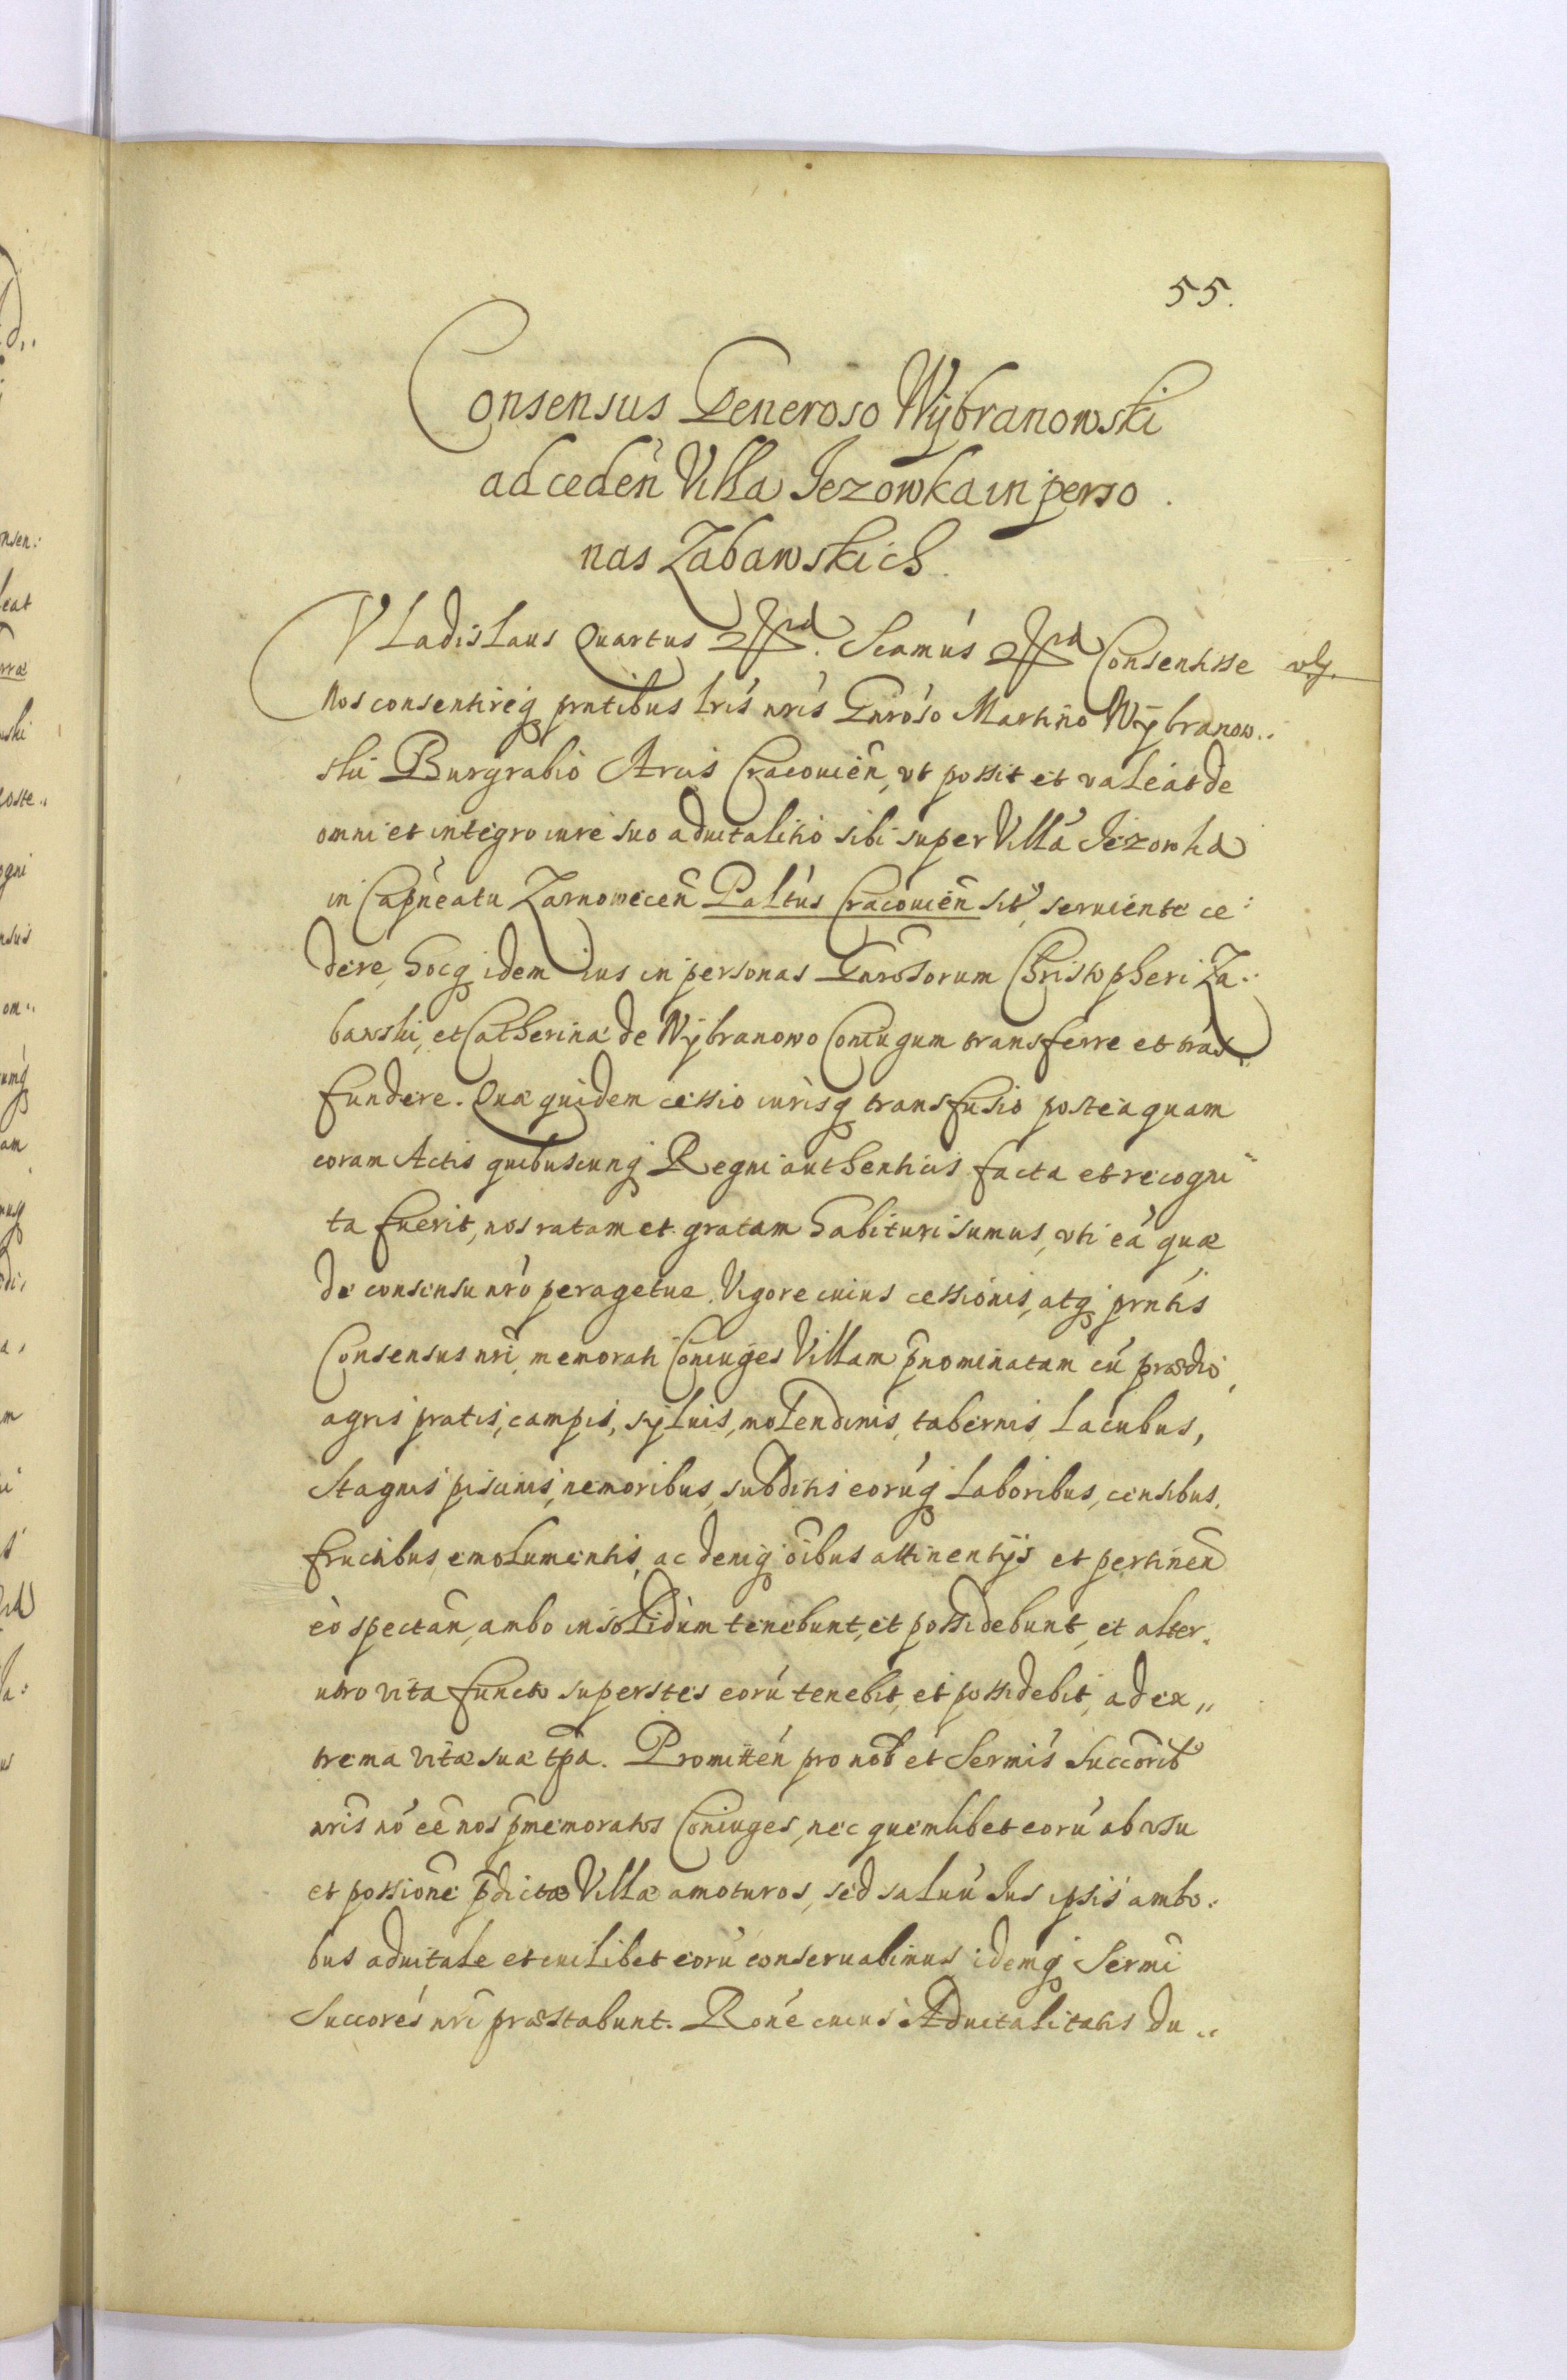 55.
Consensus Generoso Wÿbranowski
ad ceden̄ Villa Jezowka in perso
nas Zabawskich.
VLadisLaus Quartus Scamús Consentisse
Nos consentireq prntibus Lris nris Gnroso Martino Wÿbranow..
ski Burgrabio Arcis Cracouien̄, vt possit et vaLeat de
omni et integro iure suo aduitalitio sibi super Villa Jezowka
in Capneatu Zarnowecen̄ Paltus Cracouien̄ sit, seruiente ce:
dere, hocq idem ius in personas Gnrosorum Christopheri Za..
bawski, et Catherina de Wÿbranowo Coniugum transferre et tras..
fundere. Quæ quidem cessio iurisq transfusio posteaquam
coram Actis quibuscunq Regni authenticis facta et recogni
ta fuerit, nos ratam et gratam habituri sumus, vti ea quæ
de consensu nro peragetur. Vigore cuius cessionis, atq prntis
Consensus nri, memorati Coniuges Villam p̄nominatam cu prædio,
agris pratis, campis, syLuis, moLendinis, tabernis, Lacubus,
Stagnis piscinis, nemoribus, subditis eoruq Laboribus, censibus,
fructibus, emoLumentis, ac deniq oībus attinentijs et pertinen̄
eò spectan̄, ambo in soLidum tenebunt, et possidebunt, et alter.
utro vita functo superstes eorú tenebit, et possidebit, ad ex,,
trema vitæ suæ tpa. Promitten̄ pro nob et Sermis Succorib
nris nó eē nos p̄memoratos Coniuges, nec quemlibet eorú ab vsu
et possione p̄dictæ Villæ amoturos, sed saLuú Jus ipsis ambo:
bus aduitaLe et cuiLibet eorú conseruabimus, idemq Sermi
Succores nri præstabunt. Rone cuius AduitaLitatis du..